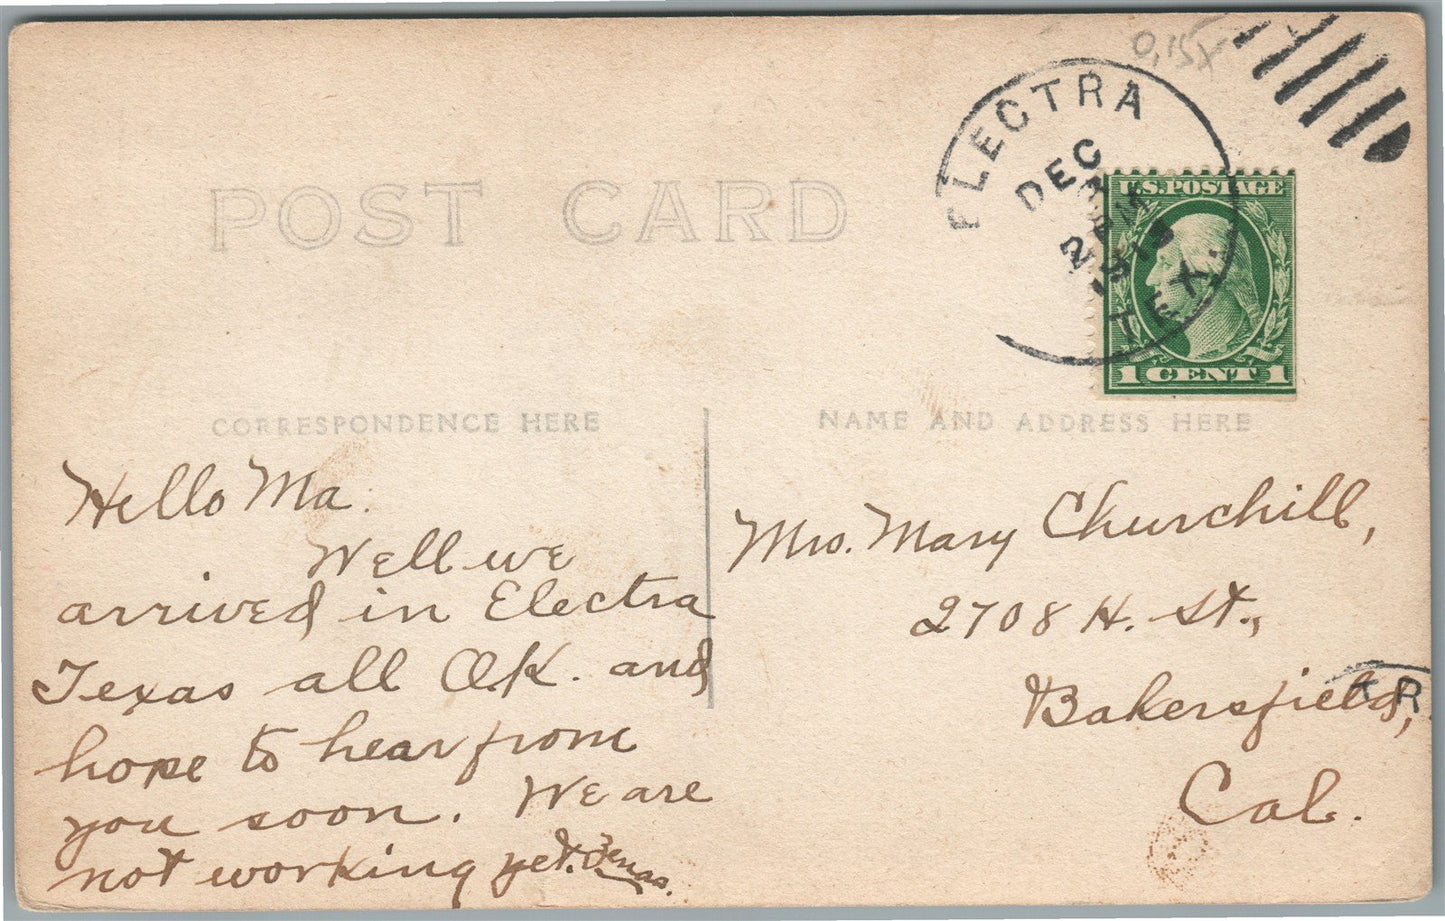 0,15x
ELECTRA
DEC
2 PM
TEX.
U.S. POSTAGE
1 CENT 1
POST CARD
CORRESPONDENCE HERE
NAME AND ADDRESS HERE
Hello Ma.
Well we
arrived in Electra
Texas all O.K. and
hope to hear from
you soon. We are
not working yet.
Mrs. Mary Churchill,
2708 H. St.,
Bakersfield,
Cal.